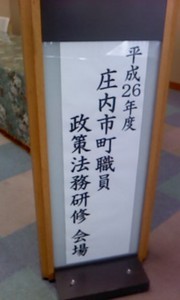 平成26年度
庄内市町職員
政策法務研修 会場